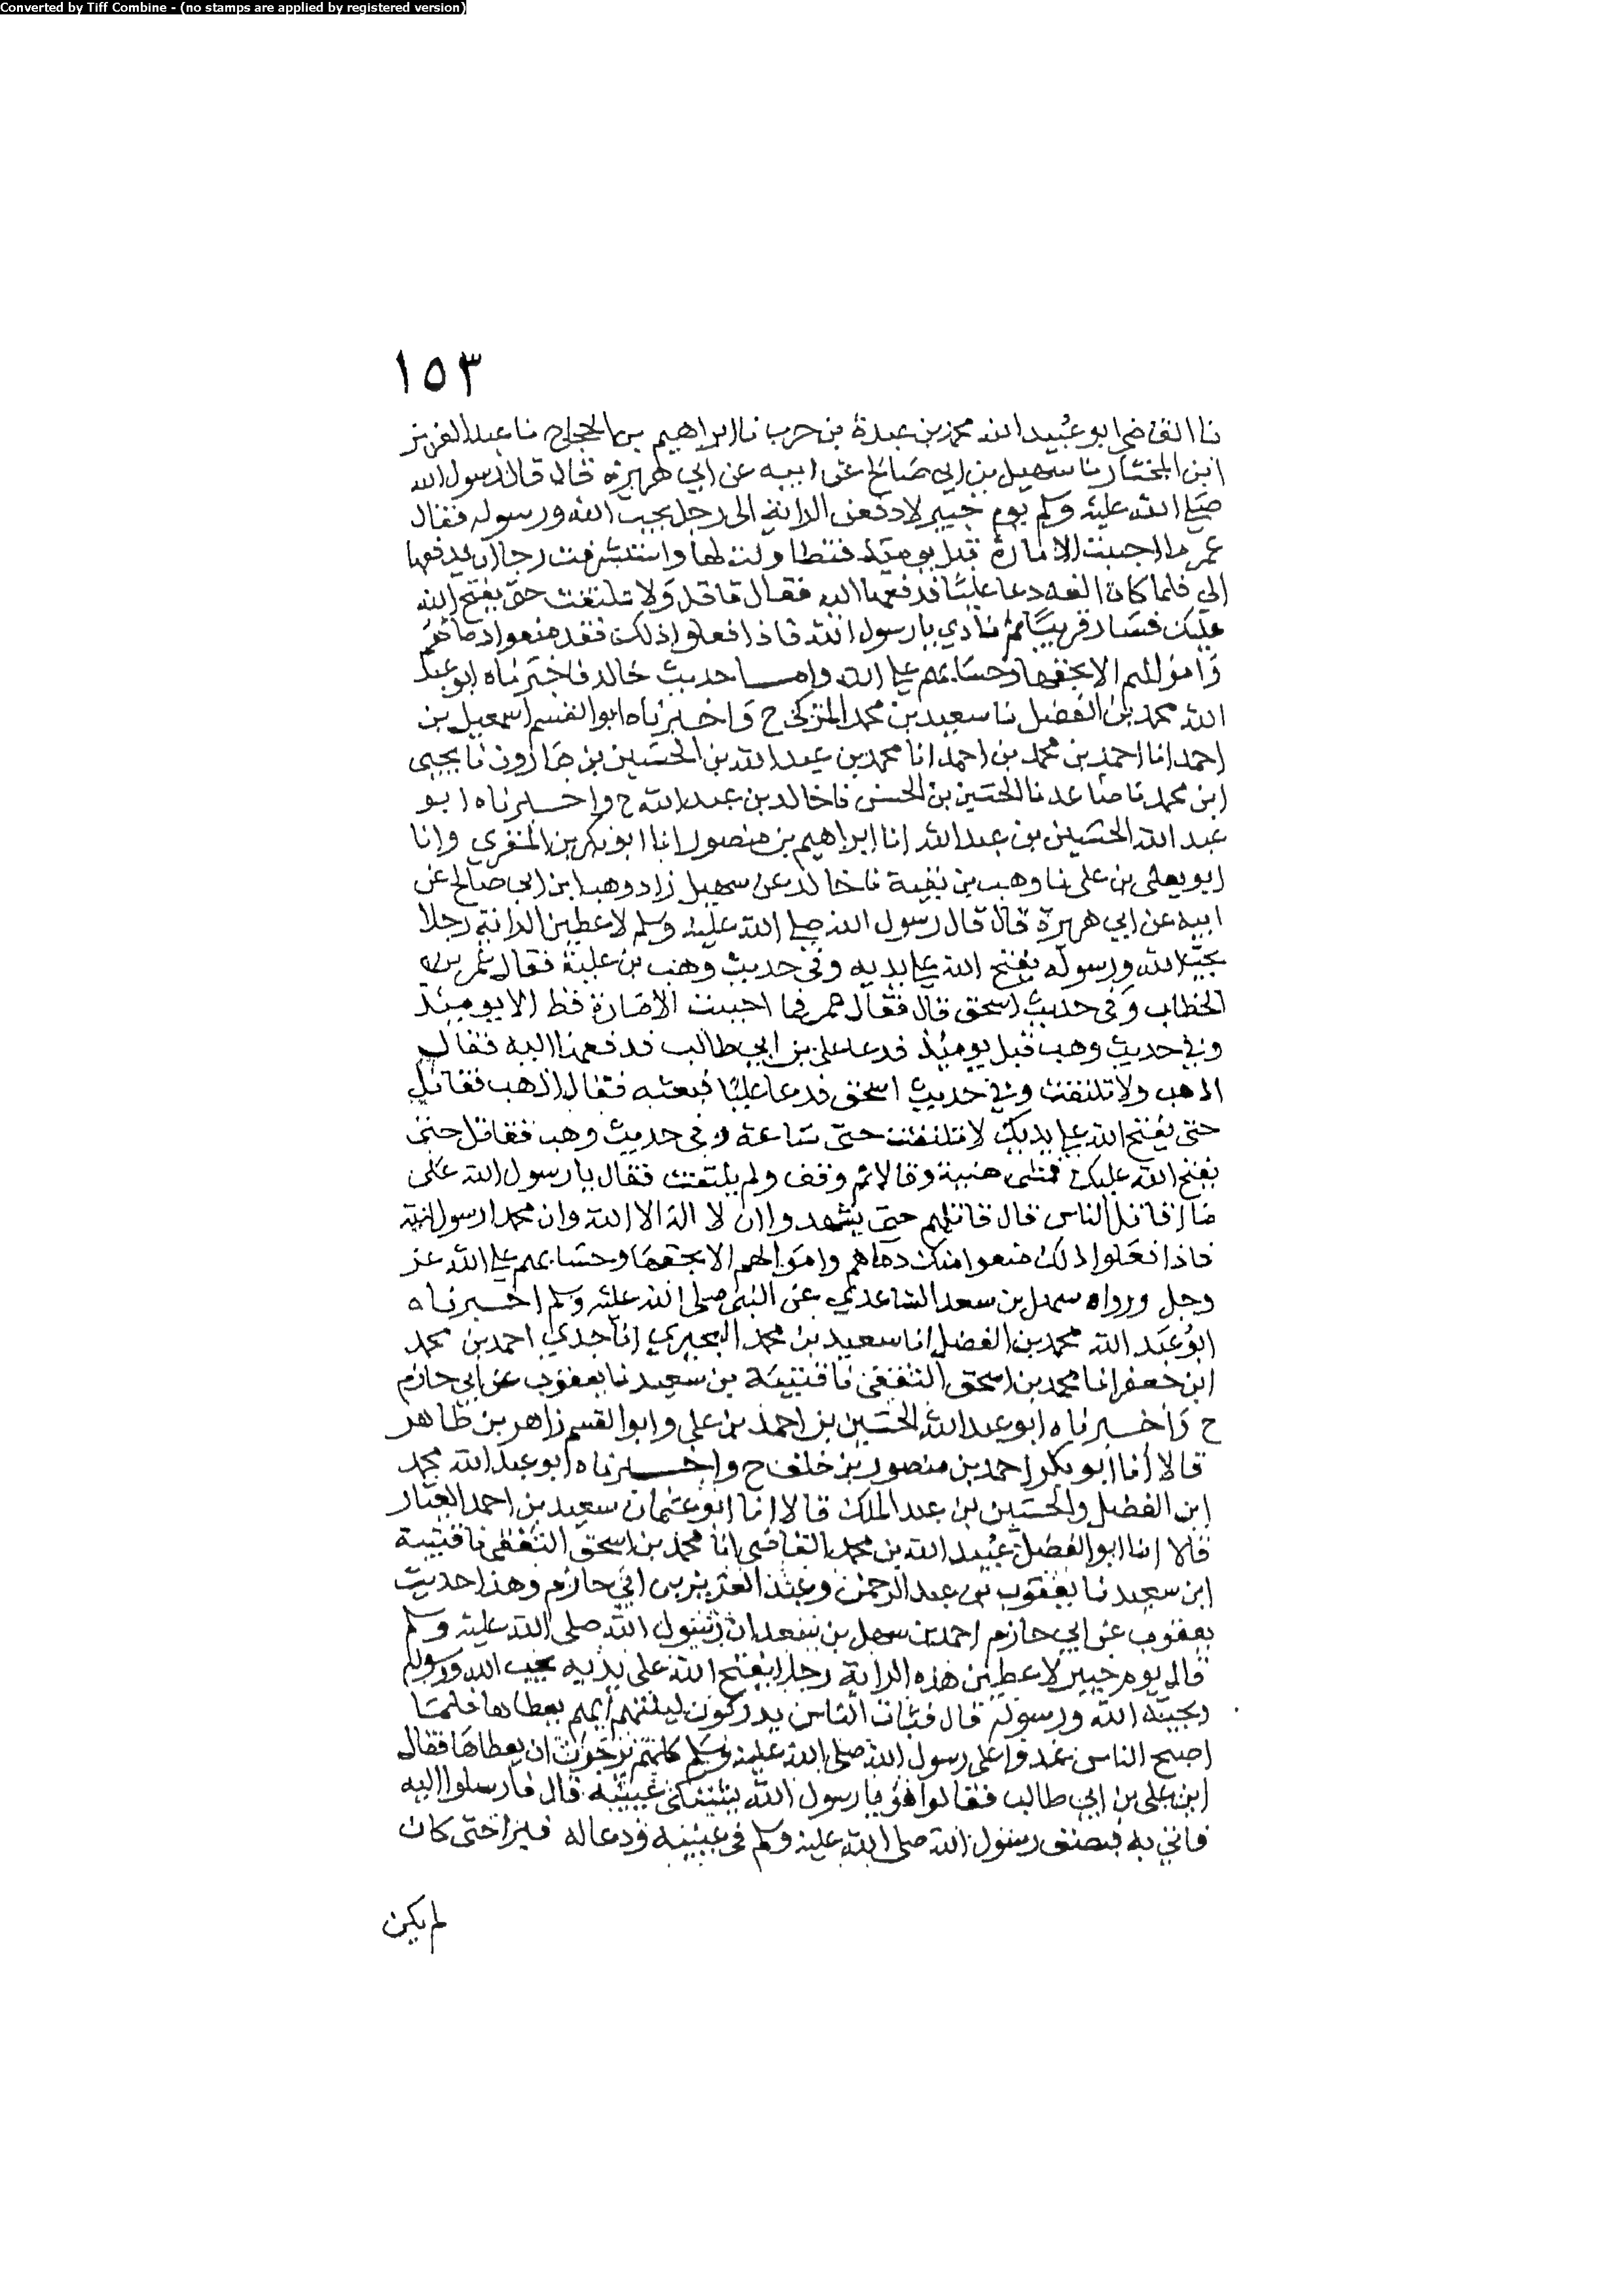 Converted by Tiff Combine - (no stamps are applied by registered version)
١٥٣
نا القاضي ابو عبيد الله محمد بن عبدة بن حرب نا ابراهيم بن الحجاج نا عبد العزيز
ابن المختار نا سهيل بن ابي صالح عن ابيه عن ابي هريرة قال قال رسول الله
صلى الله عليه وسلم يوم خيبر لادفعن الراية الى رجل يحب الله ورسوله فقال
عمر ما احببت الامارة قبل يومئذ فتطاولت لها واستشرفت رجا ان يدفعها
الي فلما كان الغد دعا عليا فدفعها اليه فقال قاتل ولا تلتفت حتى يفتح الله
عليك فسار قريبا ثم نادي يا رسول الله فاذا فعلوا ذلك فقد منعوا دماهم
واموالهم الا بحقها وحسابهم على الله واما حديث خالد فاخبرناه ابو عبد
الله محمد بن الفضل نا سعيد بن محمد المزكي ح واخبرناه ابو القسم اسمعيل بن
احمد انا احمد بن محمد بن احمد انا محمد بن عبد الله بن الحسين بن هارون نا يحيى
ابن محمد نا صاعد نا الحسين بن الحسن نا خالد بن عبد الله ح واخبرناه ابو
عبد الله الحسين بن عبد الله انا ابراهيم بن منصور انا ابو بكر بن المقري وانا
ابو يعلى بن على نا وهب بن بقية نا خالد عن سهيل زاد وهب ابن ابي صالح عن
ابيه عن ابي هريرة قال قال رسول الله صلى الله عليه وسلم لاعطين الراية رجلا
يحب الله ورسوله يفتح الله على يديه وفى حديث وهب بن علية فقال عمر بن
الخطاب وفى حديث اسحق قال فقال عمر فما احببت الامارة قط الا يومئذ
وفي حديث وهب قبل يومئذ فدعا على بن ابي طالب فدفعها اليه فقال
اذهب ولا تلتفت وفي حديث اسحق فدعا عليا فبعثه فقال اذهب فقاتل
حتى يفتح الله على يديك لا تلتفت حتى ساعة وفى حديث وهب فقاتل حتى
يفتح الله عليك فمشى هنية وقالا ثم وقف ولم يلتفت فقال يا رسول الله على
ما اقاتل الناس قال قاتلهم حتى يشهدوا ان لا اله الا الله وان محمدا رسول الله
فاذا فعلوا ذلك منعوا منك دماهم واموالهم الا بحقها وحسابهم على الله عز
وجل ورواه سهل بن سعد الساعدي عن النبى صلى الله عليه وسلم اخبرناه
ابو عبد الله محمد بن الفضل انا سعيد بن محمد البحيري انا جدي احمد بن محمد
ابن جعفر انا محمد بن اسحق الثقفى نا قتيبة بن سعيد نا يعقوب عن ابي حازم
ح واخبرناه ابو عبد الله الحسين بن احمد بن على وابو القسم زاهر بن طاهر
قالا انا ابو بكر احمد بن منصور بن خلف ح واخبرناه ابو عبد الله محمد
ابن الفضل والحسين بن عبد الملك قالا انا ابو عثمان سعيد بن احمد العيار
قالا انا ابو الفضل عبيد الله بن محمد القاضى انا محمد بن اسحق الثقفى نا قتيبة
ابن سعيد نا يعقوب بن عبد الرحمن وعبد العزيز بن ابي حازم وهذا حديث
يعقوب عن ابي حازم احمد بن سهل بن سعد ان رسول الله صلى الله عليه وسلم
قال يوم خيبر لاعطين هذه الراية رجلا يفتح الله على يديه يحب الله ورسوله
ويحبه الله ورسوله قال فبات الناس يدركون ليلتهم ايهم يعطاها فلما
اصبح الناس غدوا على رسول الله صلى الله عليه وسلم كلهم يرجون ان يعطاها فقال
اين على بن ابي طالب فقالوا هو يا رسول الله يشتكى عينيه قال فارسلوا اليه
فاتي به فبصق رسول الله صلى الله عليه وسلم فى عينيه ودعا له فبرا حتى كان
لم يكن